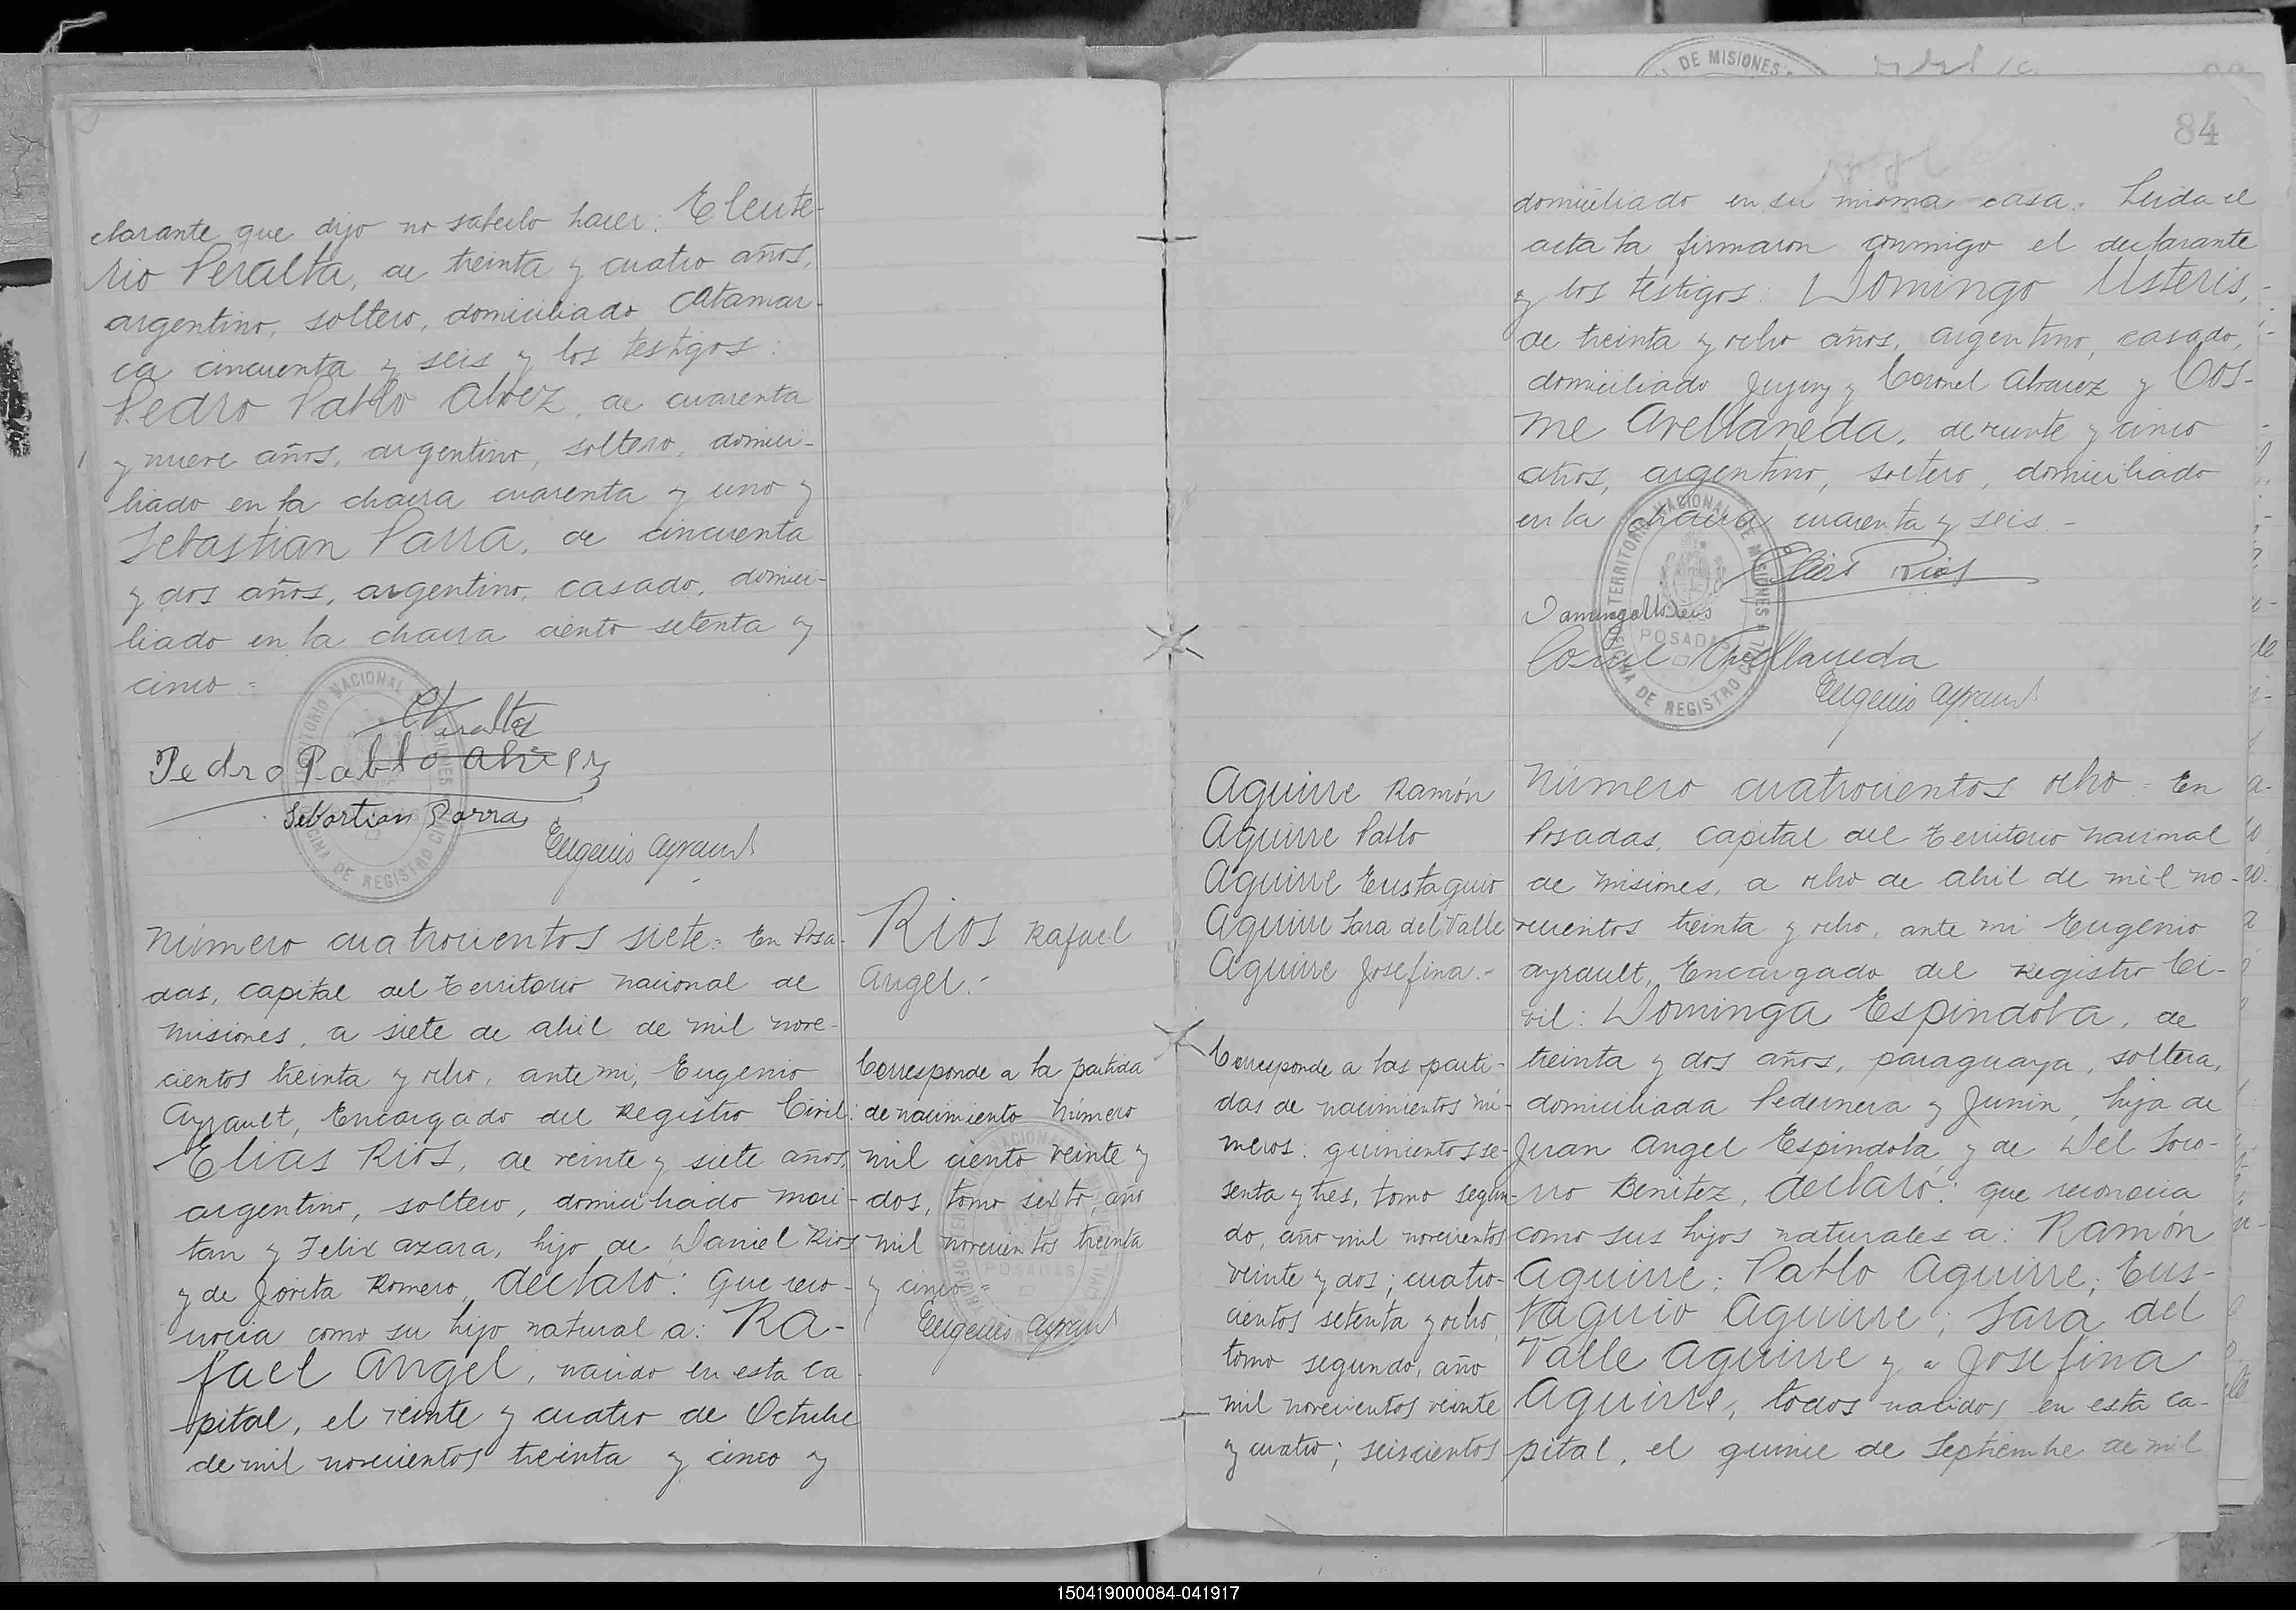 clarante que dijo no saberlo hacer: Eleute-
rio Peralta, de treinta y cuatro años,
argentino, soltero, domiciliado Catamar-
ca cincuenta y seis y los testigos:
Pedro Pablo Alvez, de cuarenta
y nueve años, argentino, soltero, domici-
liado en la chacra cuarenta y uno y
Sebastian Parra, de cincuenta
y dos años, argentino, casado, domici-
liado en la chacra ciento setenta y
cinco =
EPeralta
Pedro Pablo Alvez
Sebastian Parra
Eugenio Ayrault
Número cuatrocientos siete = En Posa-
das, Capital del Territorio Nacional de
Misiones, a siete de abril de mil nove-
cientos treinta y ocho, ante mi, Eugenio
Ayrault, Encargado del Registro Civil:
Elias Rios, de veinte y siete años,
argentino, soltero, domiciliado Mari-
tan y Felix Azara, hijo de Daniel Rios
y de Jovita Romero, declaró: Que reco-
nocia como su hijo natural a: Ra-
fael Angel, nacido en esta ca
pital, el veinte y cuatro de Octubre
de mil novecientos treinta y cinco y
Rios Rafael
Angel.-
Corresponde a la partida
de nacimiento número
mil ciento veinte y
dos, tomo sexto, año
mil novecientos treinta
y cinco =
Eugenio Ayrault
DE MISIONES
84
domiciliado en su misma casa. Leida el
acta la firmaron conmigo el declarante
y los testigos: Domingo Usteris,
de treinta y ocho años, argentino, casado,
domiciliado Jujuy y Coronel Alvarez y Cos-
me Avellaneda, de veinte y cinco
años, argentino, soltero, domiciliado
en la chacra cuarenta y seis.-
Elias Rios
Domingo Usteris
Cosme Avellaneda
Eugenio Ayrault
TERRITORIO NACIONAL DE MISIONES
POSADAS
OFICINA DE REGISTRO CIVIL
Aguirre Ramón
Aguirre Pablo
Aguirre Eustaquio
Aguirre Sara del Valle
Aguirre Josefina.-
Corresponde a las parti-
das de nacimientos nú-
meros: quinientos se-
senta y tres, tomo segun-
do, año mil novecientos
veinte y dos; cuatro-
cientos setenta y ocho,
tomo segundo, año
mil novecientos veinte
y cuatro; seiscientos
Número cuatrocientos ocho = En
Posadas, Capital del Territorio Nacional
de Misiones, a ocho de abril de mil no-
vecientos treinta y ocho, ante mi Eugenio
Ayrault, Encargado del Registro Ci-
vil: Dominga Espindola, de
treinta y dos años, paraguaya, soltera,
domiciliada Pedernera y Junin, hija de
Juan Angel Espindola y de Del Soco-
rro Benitez, declaró: que reconocia
como sus hijos naturales a: Ramón
Aguirre; Pablo Aguirre; Eus-
taquio Aguirre; Sara del
Valle Aguirre y a Josefina
Aguirre, todos nacidos en esta ca-
pital, el quince de Septiembre de mil
150419000084-041917